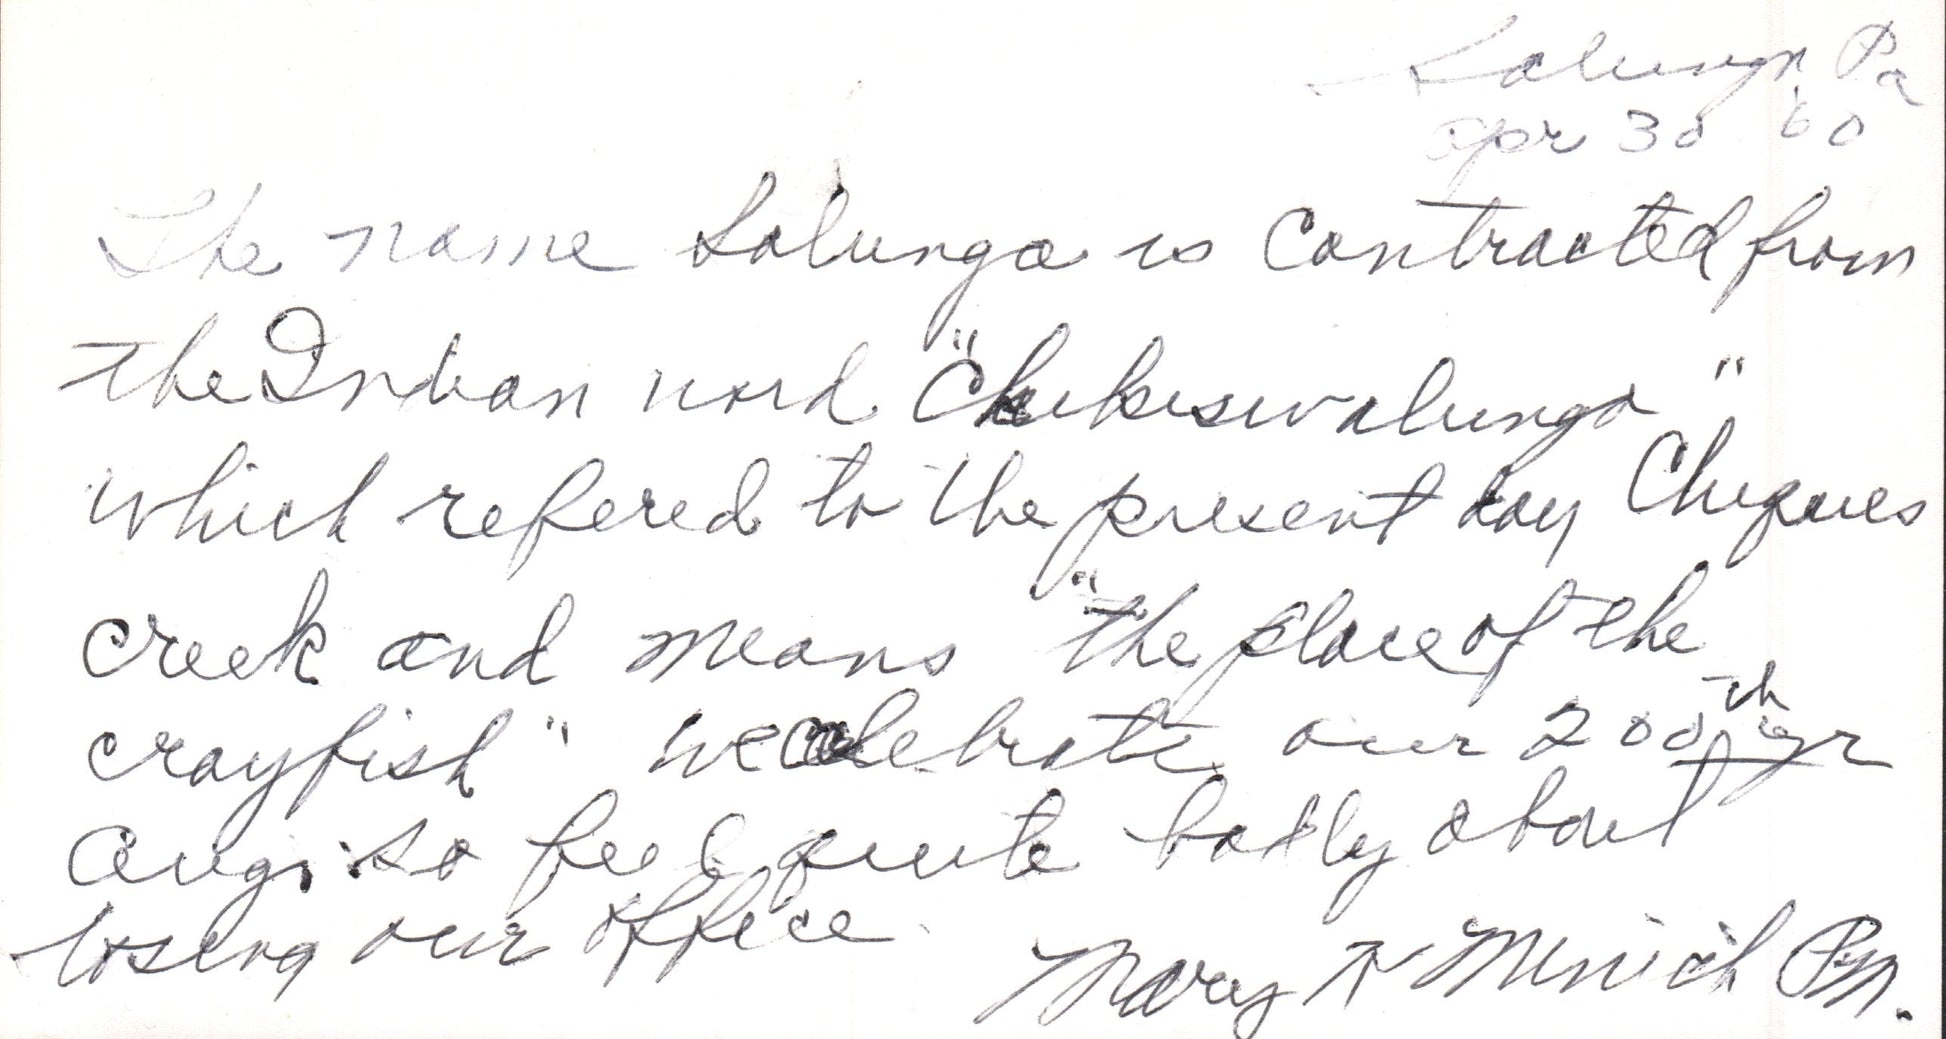 Salunga Pa
Apr 30 '60
The name Salunga is contracted from
the Indian word "Chekiswalunga"
which refered to the present day Chiques
creek and means "the place of the
crayfish" we celebrate our 200th yr
Aug. so feel quite badly about
losing our office.
Mary Minich P.M.